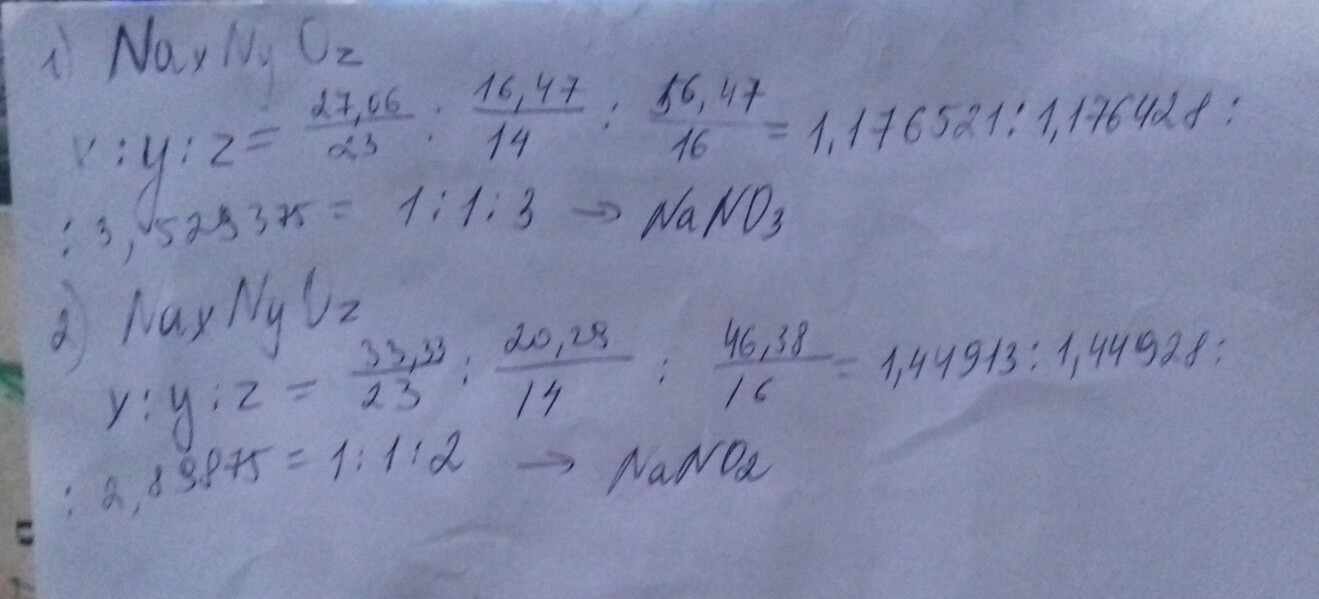 1) NaxNyOz
x : y : z = 27,06/23 : 16,47/14 : 56,47/16 = 1,176521 : 1,176428 :
: 3,529375 = 1 : 1 : 3 → NaNO3
2) NaxNyOz
x : y : z = 33,33/23 : 20,29/14 : 46,38/16 = 1,44913 : 1,44928 :
: 2,89875 = 1 : 1 : 2 → NaNO2